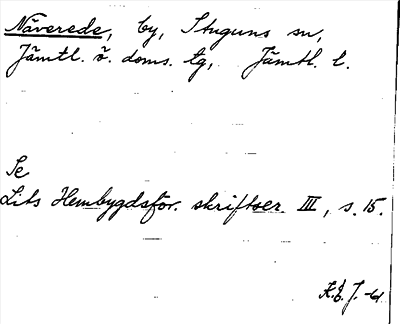 Näverede, by, Stuguns sn,
Jämtl. ö. doms. tg, Jämtl. l.
Se
Lits Hembygdsför. skriftser. III, s. 15.
K.E.J.-d